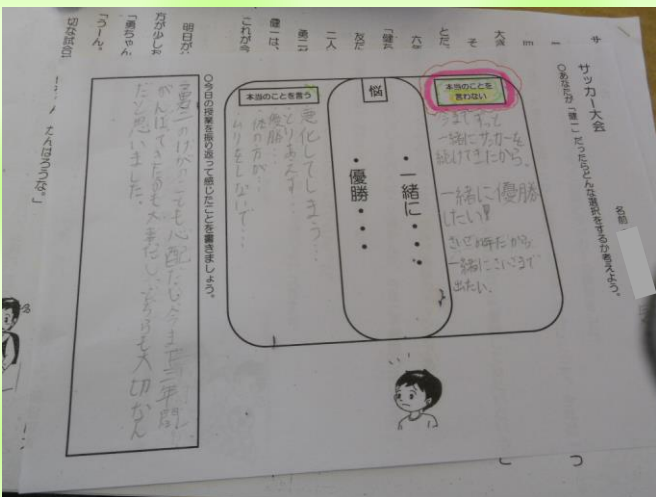 サッカー大会
名前
○あなたが「健一」だったらどんな選択をするか考えよう。
本当のことを
言わない
今までずっと
一緒にサッカーを
続けてきたから。
一緒に優勝
したい!!
さいごの年だから
一緒にさいごまで
出たい。
悩
・一緒に・・・
・優勝・・・
本当のことを言う
悪化してしまう…
とりあえず…
優勝…
体の方が…
ムリをしないで…
○今日の授業を振り返って感じたことを書きましょう。
勇二のけがのことも心配だし、今まで三年間
がんばってきたのも大事だし、どちらも大切なん
だと思いました。
大
そ
とだ。
六
「健
友だ
二人
勇二
健一は、
これが今
明日が
方が少した
「勇ちゃん
「うーん。
切な試合
がんばろうな。」